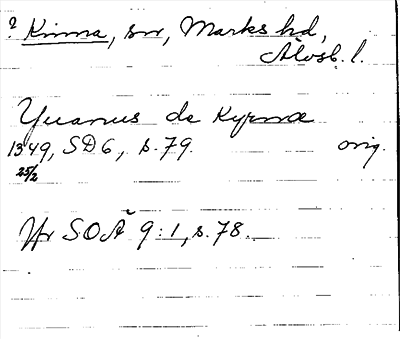 ? Kinna, sn, Marks hd,
Älvsb. l.
Yuanus de Kyrnæ
1349, SD 6, s. 79. orig.
25/2
Jfr SOÄ 9:1, s. 78.